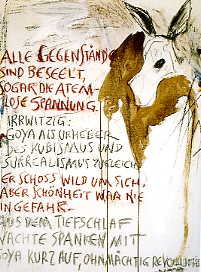 ALLE GEGENSTÄNDE
SIND BESEELT,
SOGAR DIE ATEM-
LOSE SPANNUNG.
IRRWITZIG:
GOYA ALS URHEBER
DES KUBISMUS UND
SURREALISMUS ZUGLEICH
ER SCHOSS WILD UM SICH,
ABER SCHÖNHEIT WAR NIE
IN GEFAHR.
AUS DEM TIEFSCHLAF
WACHTE SPANIEN MIT
GOYA KURZ AUF, OHNMÄCHTIG